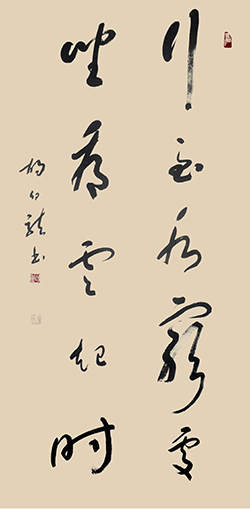 行至水穷处
坐看云起时